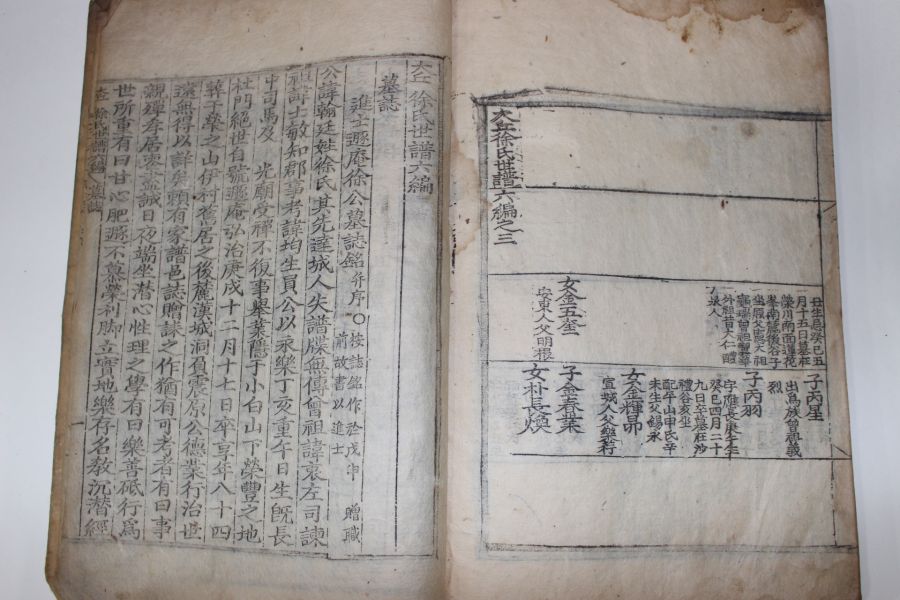 丑生忌癸巳五
月十五日墓在
榮川南面蓮花
峯南麓後谷子
女金五奎
安東人父明根
子丙星
子丙羽
字應長庚子生
癸巳四月二十
九日卒墓在沙
禮谷亥坐
配平山申氏辛
未生父錫永
女金輝昴
宣城人父
子金春葉
女朴長煥
大丘徐氏世譜六編之三
大丘徐氏世譜六編
墓誌
進士遯庵徐公墓誌銘并序〇按誌銘作於戊申贈職
前故書以進士
公諱翰廷姓徐氏其先達城人失譜牒無傳曾祖諱衷左司諫
祖諱士敏知郡事考諱均生員公以永樂丁亥重午日生旣長
中司馬及 光廟受禪不復事擧業隱于小白山下榮豐之地
杜門絶世自號遯庵弘治庚戌十二月十七日卒享年八十四
葬于癸之山伊村舊居之後麓漢城洞負震原公德業行治世
遠無得以詳矣頼有家譜邑誌贈誄之作猶有可考者有曰事
親殫孝居喪盡誠日夕端坐潜心性理之學有曰樂善砥行爲
世所重有曰甘心肥遯不慕榮利脚立實地樂存名敎沉潜經